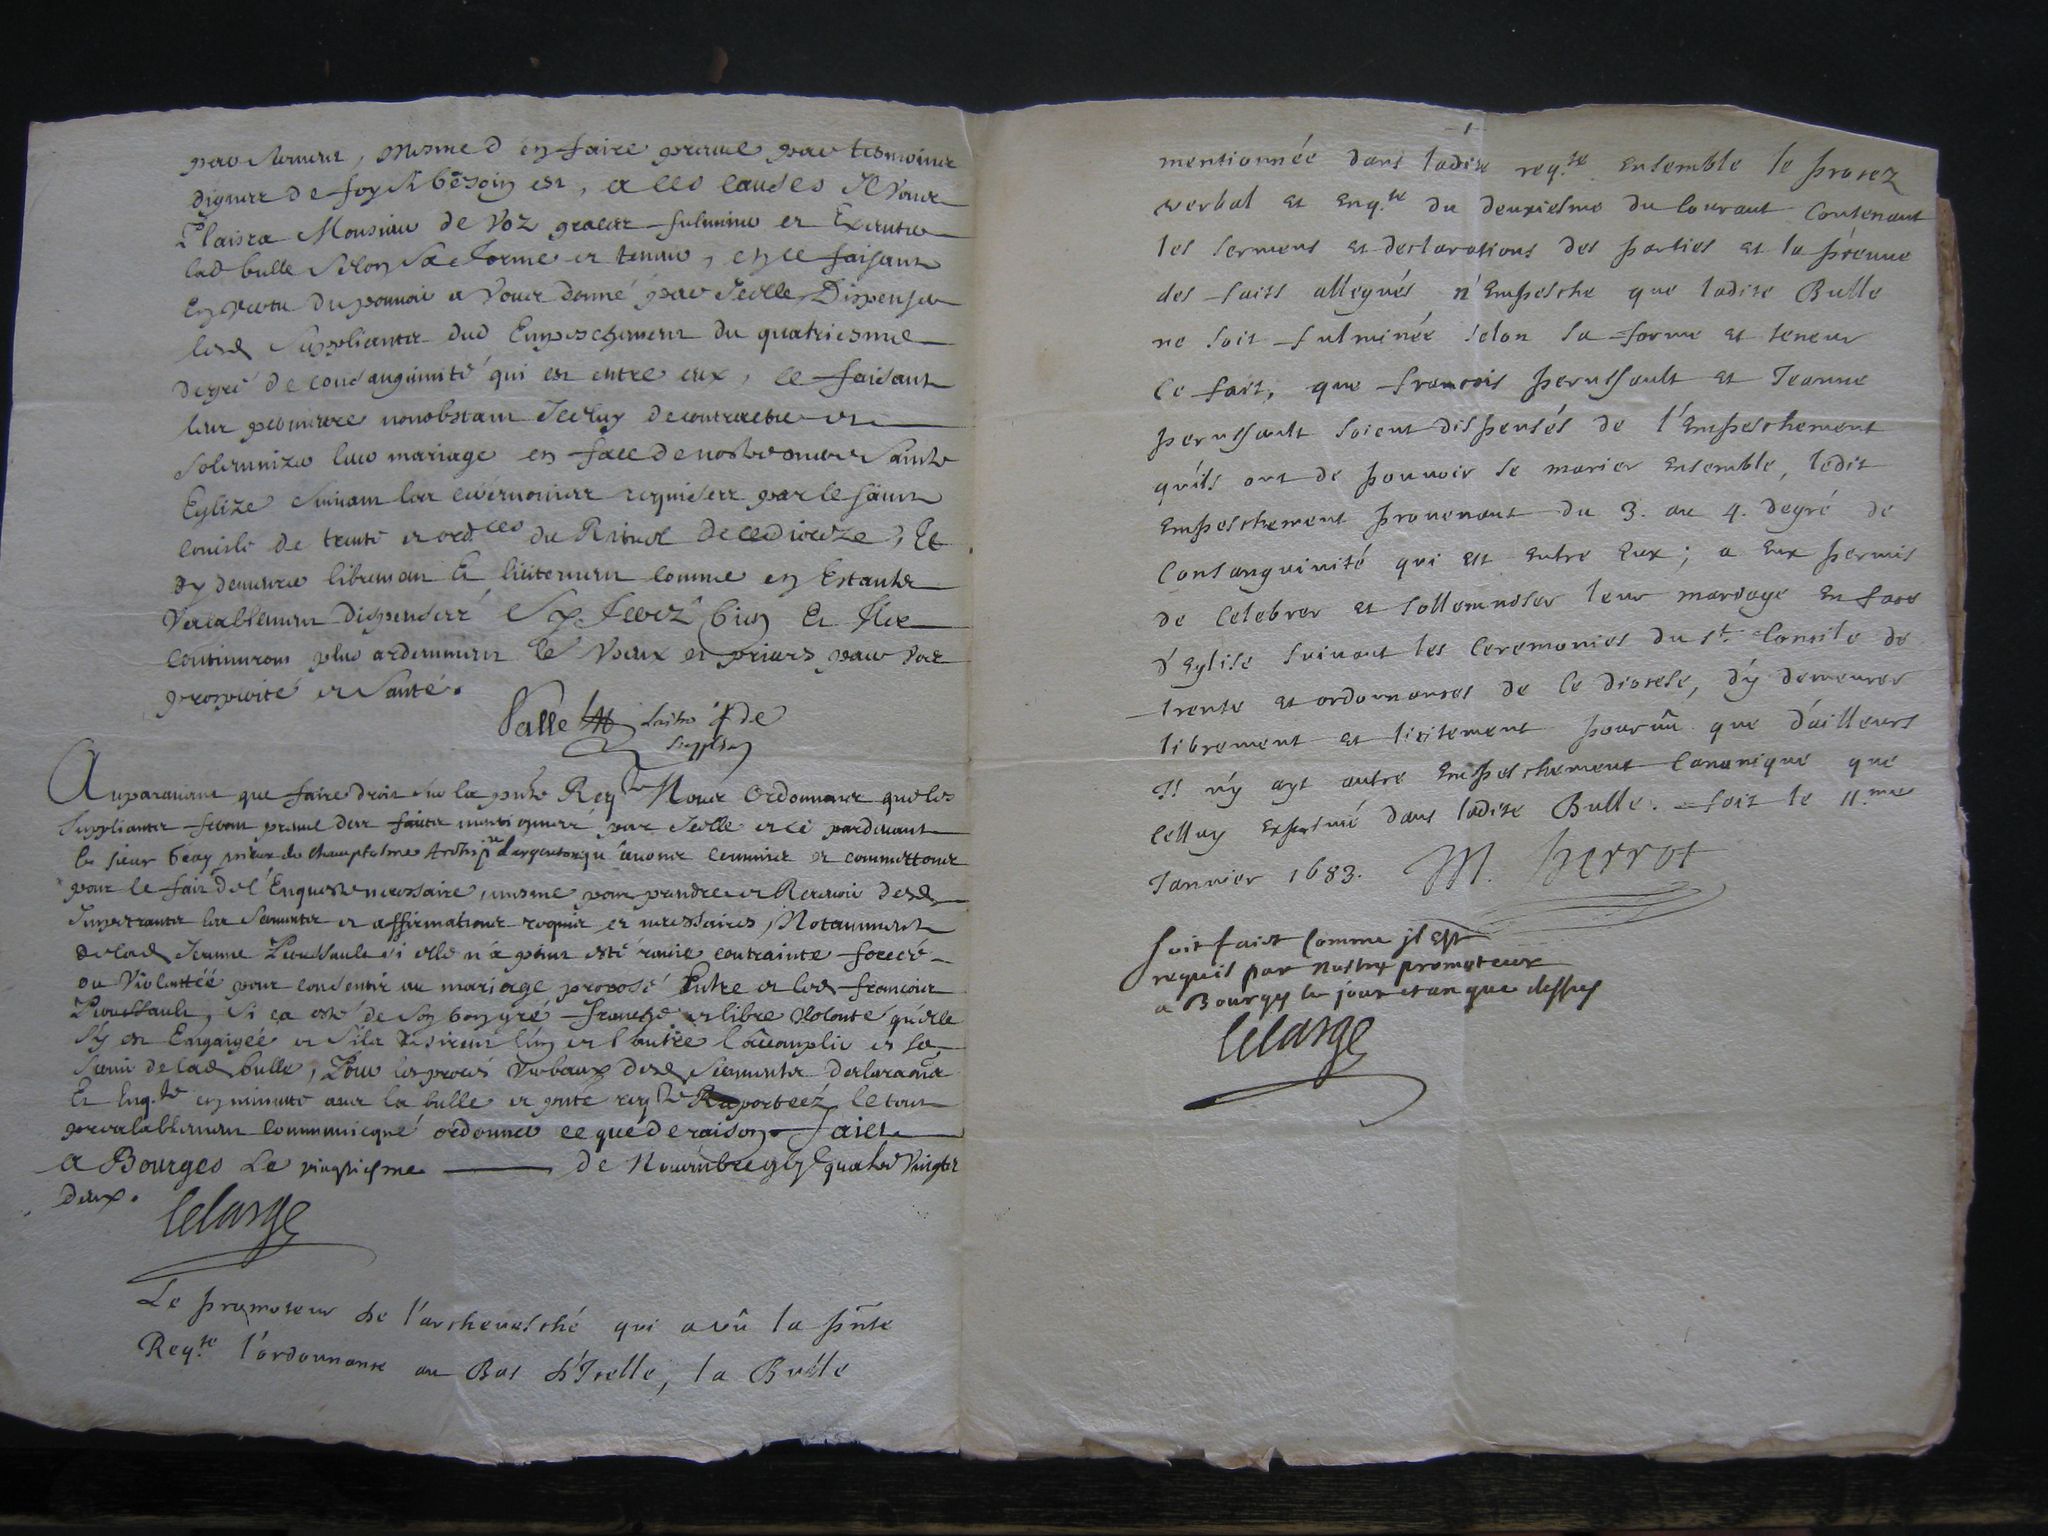 par serment, mesme d en faire preuve par tesmoins
dignes de foy si besoin est, a ces causes Il vous
Plaira Monsieur de voz graces fulminer et Executer
lad bulle selon sa forme et teneur, en ce faisant
En vertu du pouvoir a vous donné par Icelle, Dispenser
lesd Supplianter dud Empeschement du quatriesme
degré de consanguinité qui est entre eux, ce faisant
leur permettre nonobstant Iceluy de contracter et
solemnizer leur mariage en face de nostre mere Sainte
Eglize suivant les cérémonies requises par le saint
Concile de trente et ordces du Rituel de ce dioceze, Et
dy demeurer librement Et licitement comme en Estants
Valablement dispenserz Sy Ferez bien Et Ilz
Continueront plus ardemment le vœux et prieres pour votre
prosperité et Santé.
Vallet
Supplians
Auparavant que faire droit sur la pnte Reqte Nous Ordonnons que les
Supplianter feront preuve des faits mentionnez par Icelle et ce pardevant
le sieur prieur de Champholme Archiptre dargenton qu avons commis et commettons
pour le fait de l'Enqueste necessaire, mesme pour prendre et Recevoir desd
Impetranter les Sermentz et affirmations requis et necessaires, Notamment
de lad Jeanne Perussault si elle n'a point esté ravie contrainte forcée
ou Violentéé pour consentir au mariage proposé Entre et led francois
Perussault, Si ca esté de son bon gré franche et libre volonté qu'elle
s'y est Engaigée et S'ils desirent l'un et l'autre l'accomplir et se
servir de lad bulle, Pour les procés verbaux desd Sermentz declaraons
Et Enqte en minutte avec la bulle et pnte reqte Raporteéz le tout
prealablement communicqué ordonner ce que de raison. Faict
a Bourges Le vingtiesme de Novembre gbj Quatre Vingtz
deux.
lelarge
Le promoteur de l'archevesché qui a vû la pñte
Reqte l'ordonnance au Bas d'Icelle, la Bulle
mentionnée dans ladite reqte Ensemble le procez
verbal et Enqte du deuxiesme du Courant Contenant
les sermens et declarations des parties et la preuve
des faits allegués n'Empesche que ladite Bulle
ne soit fulminée selon sa forme et teneur
Ce fait, que francois perussault et Jeanne
perussault soient dispensés de l'Empeschement
qu'ils ont de pouvoir se marier Ensemble, ledit
Empeschement provenant du 3. au 4. dégré de
Consanguinité qui est Entre Eux; a Eux permis
de Celebrer et sollemniser leur mariage En face
d'Eglise suivant les Ceremonies du st Concile de
trente et ordonnances de Ce diocese, d'y demeurer
librement et licitement pourvû que d'ailleurs
Il n'y ayt autre Empeschement Canonique que
Celluy exprimé dans ladite Bulle. fait le 11.me
Janvier 1683. M. perrot
soit faict comme il est
requis par nostre promoteur
a Bourges le jour et an que dessus
lelarge